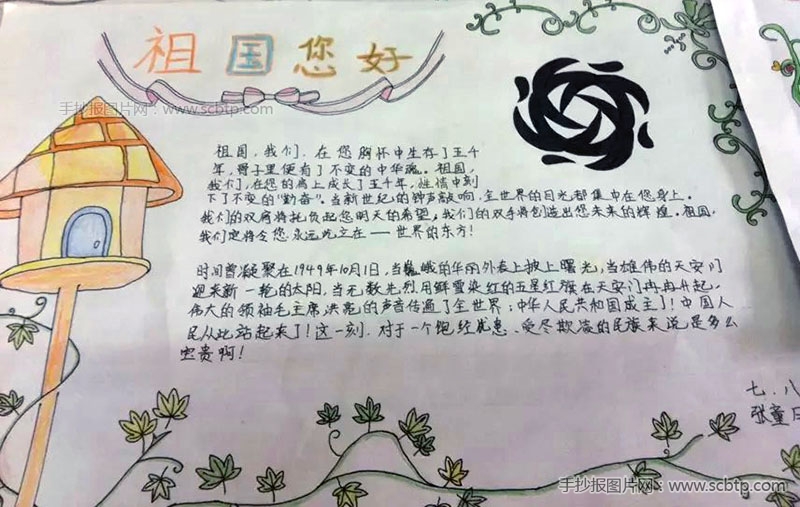 祖国您好
手抄报图片网：www.scbtp.com
祖国,我们,在您胸怀中生存了五千
年,骨子里便有了不变的中华魂。祖国,
我们,在您的肩上成长了五千年,性情中刻
下了不变的"勤奋"。当新世纪的钟声敲响,全世界的目光都集中在您身上。
我们的双肩将扛负起您明天的希望,我们的双手将创造出您未来的辉煌。祖国,
我们定将令您永远屹立在——世界的东方!
时间曾凝聚在1949年10月1日,当巍峨的华丽外表上披上曙光,当雄伟的天安门
迎来新一轮的太阳,当无数先烈用鲜雪染红的五星红旗在天安门冉冉升起,
伟大的领袖毛主席洪亮的声音传遍了全世界:中华人民共和国成主了!中国人
民从此站起来了!这一刻,对于一个饱经忧患、受尽欺凌的民族来说是多么
宝贵啊!
七.八
张童
手抄报图片网：www.scbtp.com